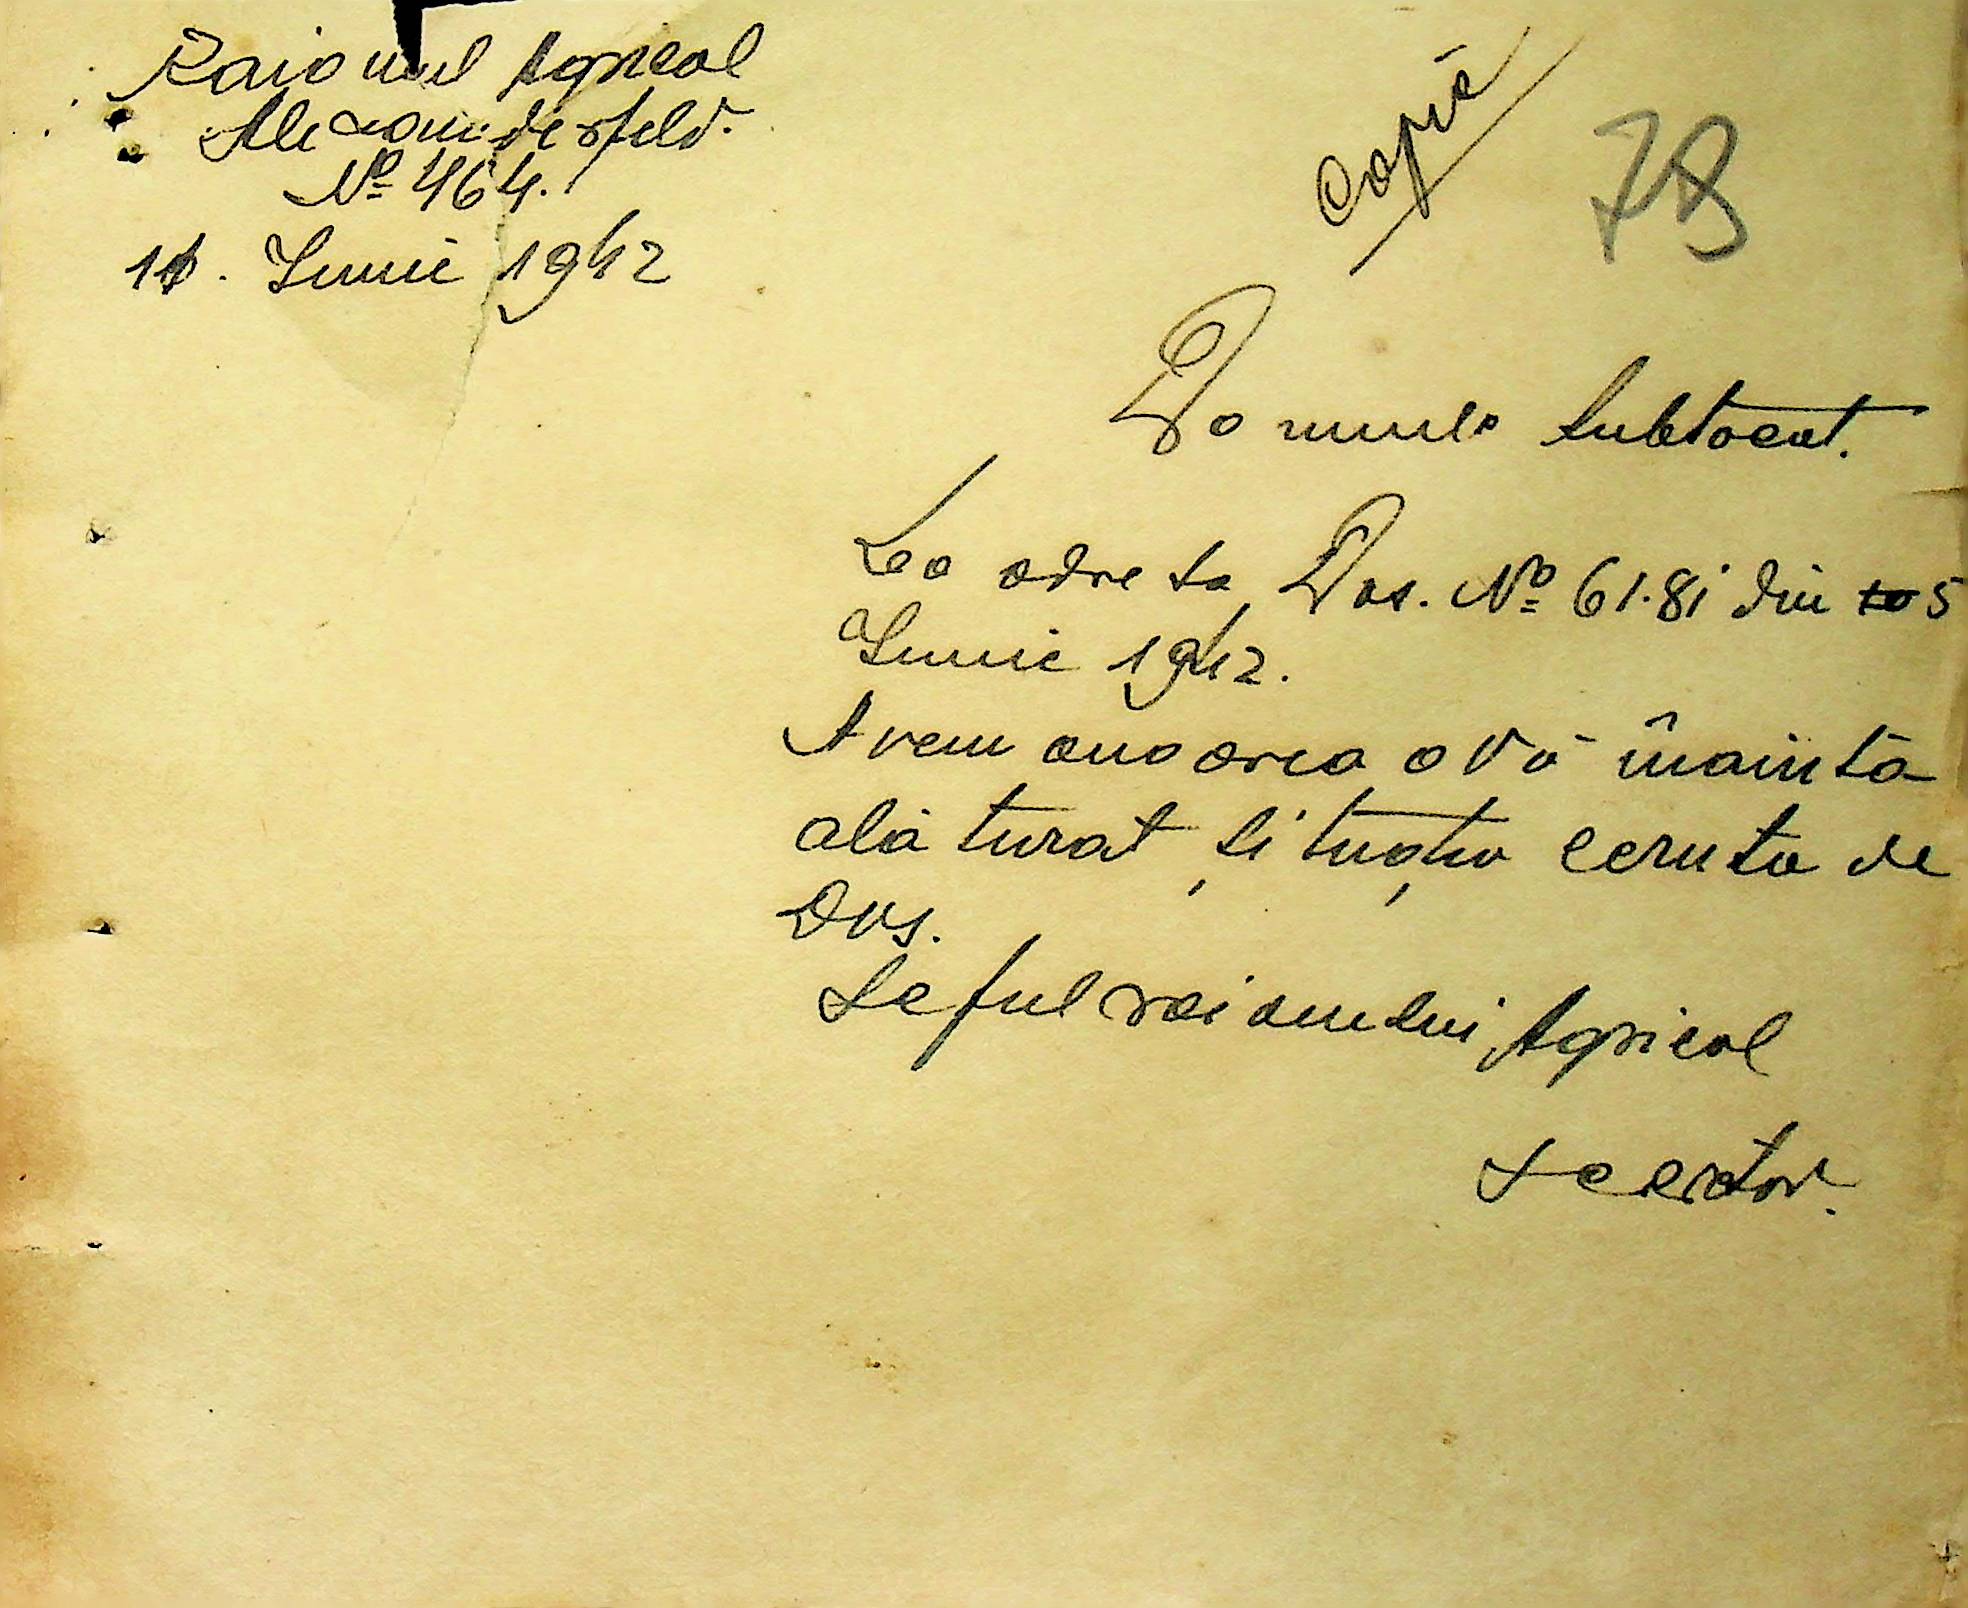 Raionul Agricol
Alexanderfeld.
Nº 464.
11. Iunie 1942
Copie
78
Domnule Subtocut.
La adresa Dvs. Nº 6181 din 5
Iunie 1942.
Avem onoarea a Vă înainta
alăturat, situația cerută de
Dvs.
Șeful raionului Agricol
Secretar.